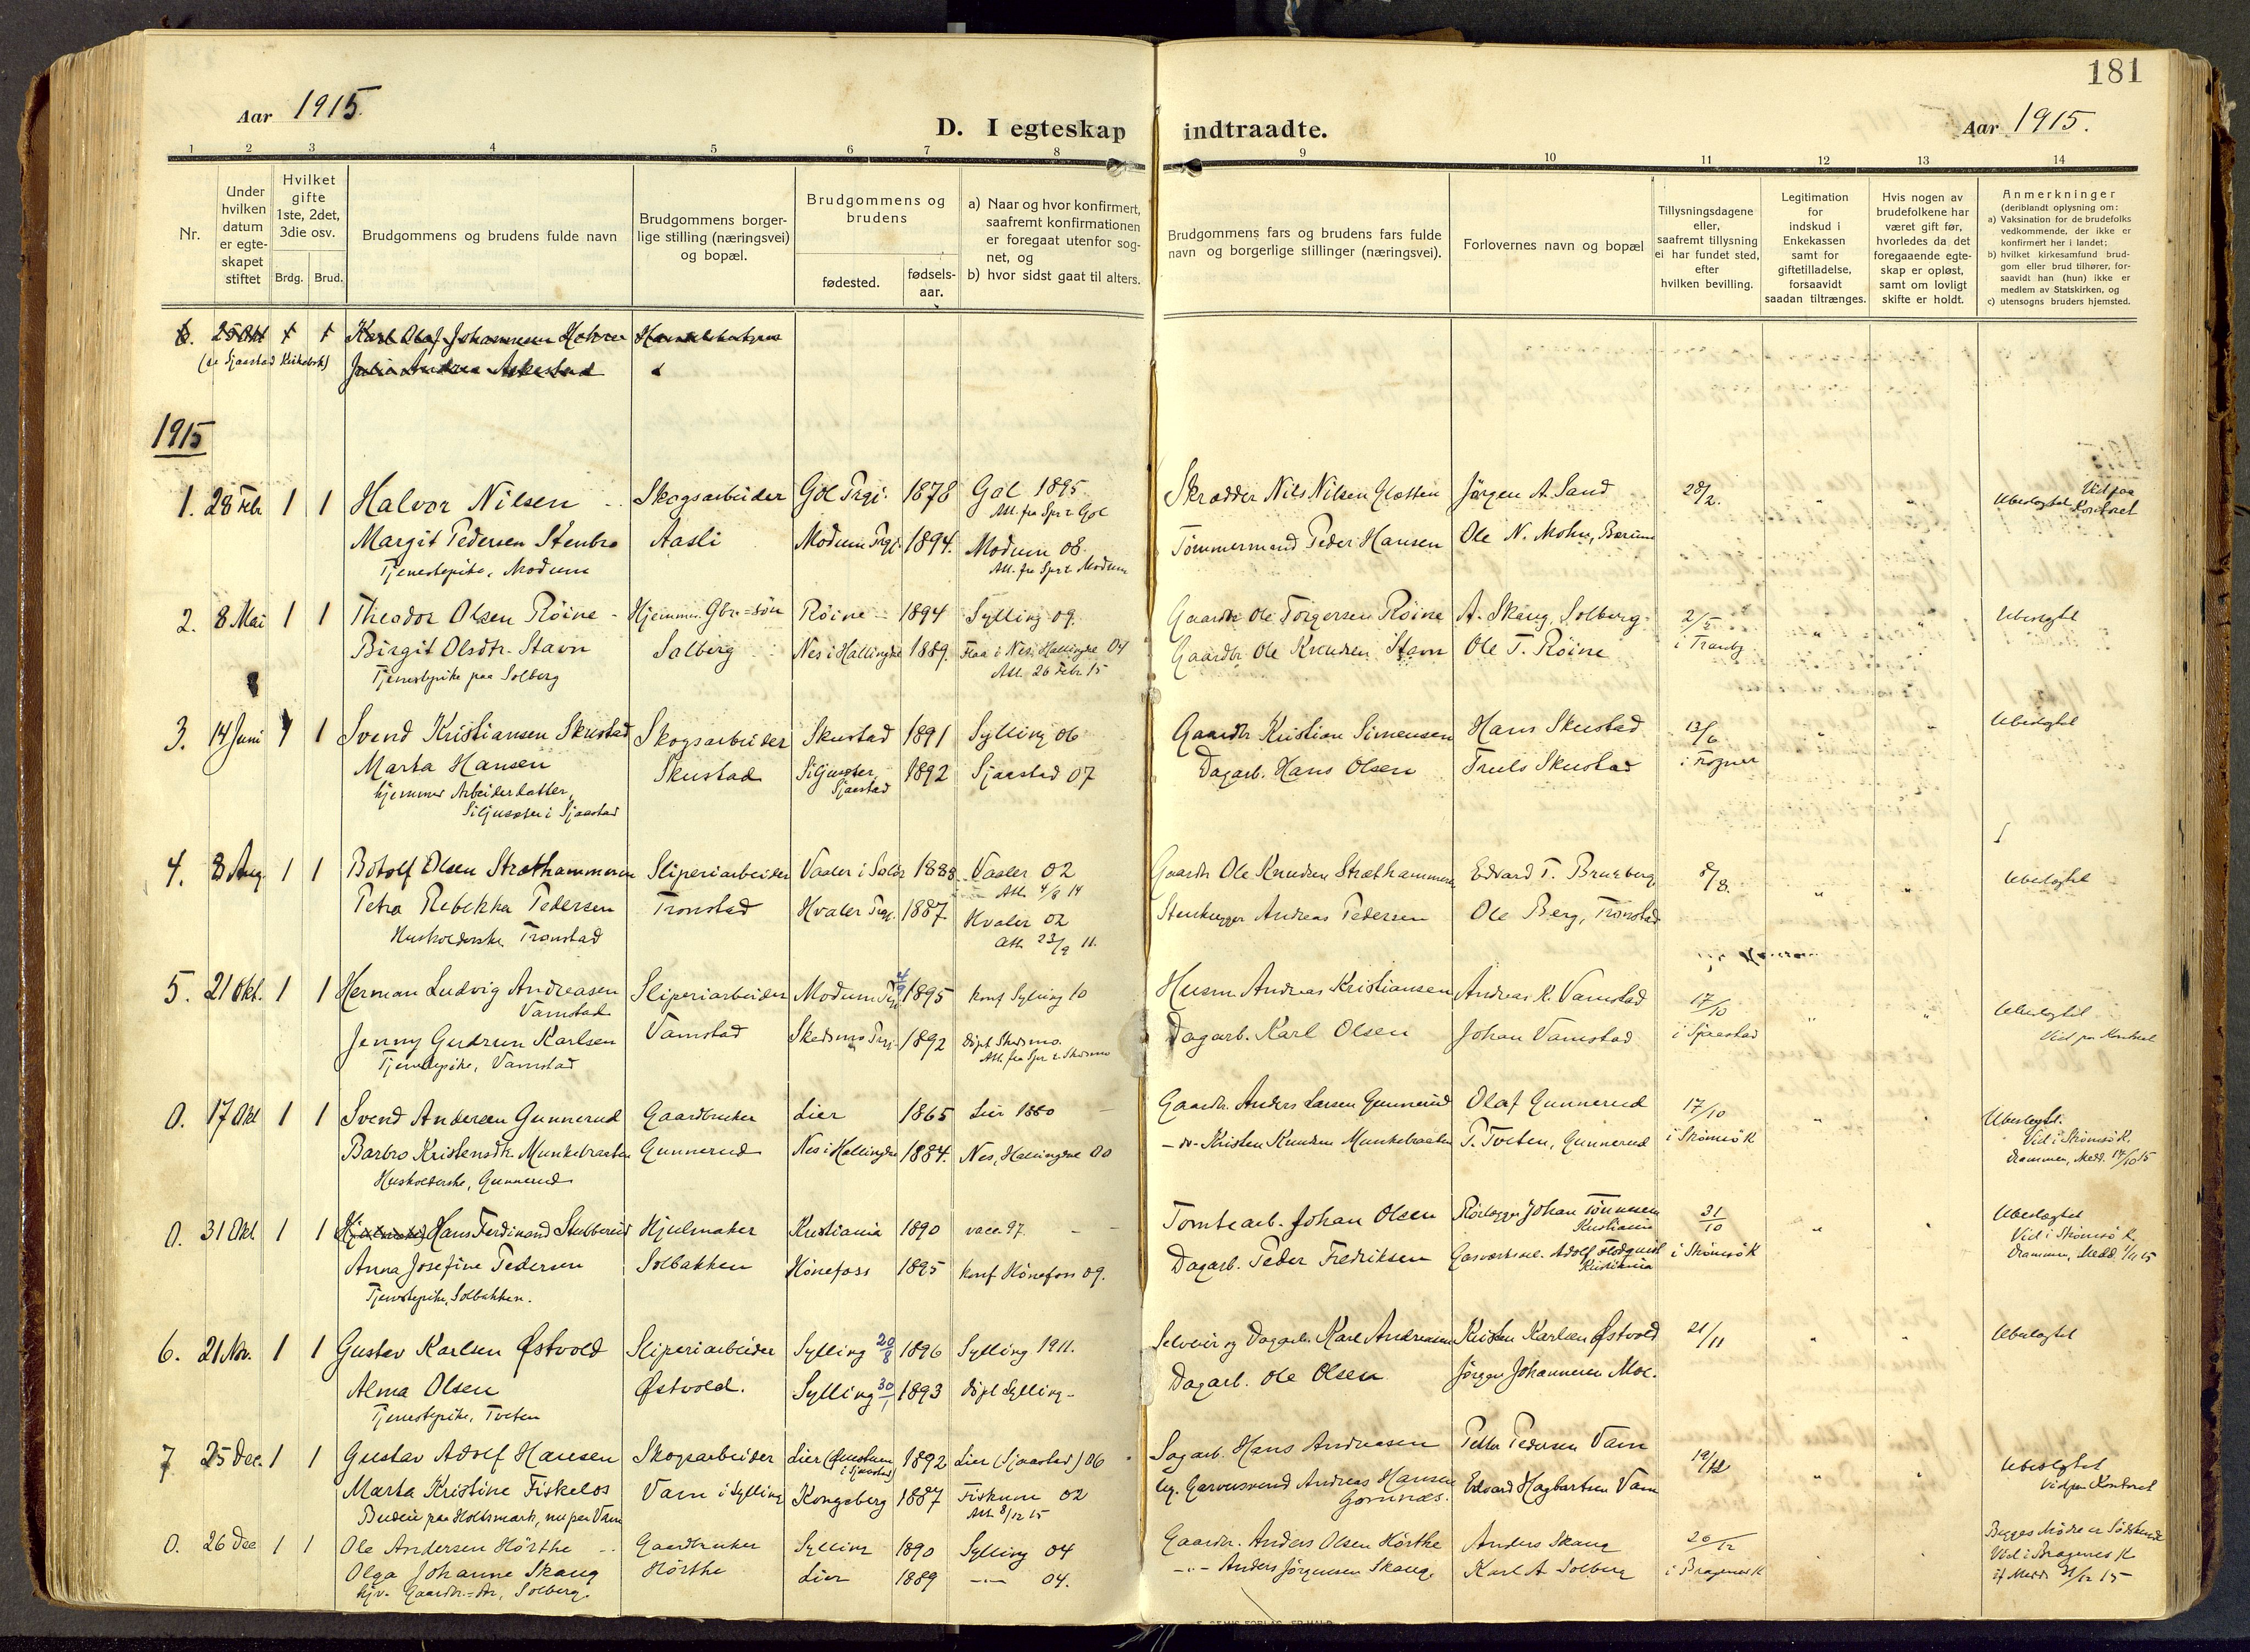 181
Aar 1915.
D. I egteskap indtraadte.
Aar 1915.
1 2 3 4 5 6 7 8 9 10 11 12 13 14
Nr.
Under hvilken datum er egte-skapet stiftet
Hvilket gifte 1ste, 2det, 3die osv.
Brdg. Brud.
Brudgommens og brudens fulde navn
Brudgommens borger-lige stilling (næringsvei) og bopæl.
Brudgommens og brudens
fødested.
fødsels-aar.
a) Naar og hvor konfirmert, saafremt konfirmationen er foregaat utenfor sog-net, og
b) hvor sidst gaat til alters.
Brudgommens fars og brudens fars fulde navn og borgerlige stillinger (næringsvei).
Forlovernes navn og bopæl
Tillysningsdagene eller, saafremt tillysning ei har fundet sted, efter hvilken bevilling.
Legitimation for indskud i Enkekassen samt for giftetilladelse, forsaavidt saadan tiltrænges.
Hvis nogen av brudefolkene har været gift før, hvorledes da det foregaaende egte-skap er opløst, samt om lovligt skifte er holdt.
Anmerkninger (deriblandt oplysning om:
a) Vaksination for de brudefolks vedkommende, der ikke er konfirmert her i landet;
b) hvilket kirkesamfund brud-gom eller brud tilhører, for-saavidt han (hun) ikke er medlem av Statskirken, og
c) utensogns bruders hjemsted.
6. 25 Okt 1 1 Karl Olaf Johannesen
(se Sjaastad Kirkebok) Julie Andrea Askestad
1915
1. 28 Febr 1 1 Halvor Nilsen Skogsarbeider Gol Prgj. 1878 Gol 1895 Skrædder Nils Nilsen Glætten Jørgen A. Sand 28/2. " " Ubeslegtet Vid paa Kontoret
Att. fra Spr. i Gol
Margit Pedersen Stenbro Aasli Modum Prgj. 1894. Modum 08. Tømmermand Peder Hansen Ole N. Mohn, Bærum
Tjenestepike, Modum Att. fra Spr. i Modum
2. 8 Mai 1 1 Theodor Olsen Røine Hjemmev. Gbr.=søn Røine 1894 Sylling 09. Gaardbr Ole Torgersen Røine A. Skaug, Solberg 2/5 " " Ubeslegtet
Birgit Olsdtr. Stavn Solberg Nes i Hallingdal 1889. Flaa i Nes i Hallingdal 04 Gaardbr Ole Knudsen Stavn Ole T. Røine i Tranby
Tjenestepike paa Solberg Att. 26 Febr. 15
3. 14 Juni 1 1 Svend Kristiansen Skustad Skogsarbeider Skustad 1891 Sylling 06 Gaardbr Kristian Simensen Hans Skustad 13/6 " Ubeslegtet
Marta Hansen Skustad Siljusæter Sjaastad 1892 Sjaastad 07 Dagarb. Hans Olsen Truls Skustad i Frogner
hjemmev Arbeiderdatter,
Siljusæter i Sjaastad
4. 8 Aug. 1 1 Botolf Olsen Stræthammeren Sliperiarbeider Vaaler i Solør 1888 Vaaler 02 Gaardbr Ole Knudsen Stræthammeren Edvard T. Bruberg 8/8. " " Ubeslegtet
Att. 4/8 14
Petra Rebekka Pedersen Tronstad Hvaler Prgj. 1887. Hvaler 02 Stenhugger Andreas Pedersen Ole Berg, Tronstad
Husholderske Tronstad Att. 23/9 11.
5. 21 Okt. 1 1 Herman Ludvig Andreasen Vamstad Sliperiarbeider Modum Prgj. 4/9 1895 konf Sylling 10 Husm Andreas Kristiansen Andreas K. Vamstad 17/10 " " Ubeslegtet
Jenny Gudrun Karlsen Vamstad Skedsmo Prgj. 1892 døpt Skedsmo. Dagarb. Karl Olsen Johan Vamstad i Sjaastad Vid paa Kontoret
Tjenestepike, Vamstad Att. fra Spr i Skedsmo
0. 17 Okt 1 1 Svend Andersen Gunnerud Gaardbruker Lier 1865 Lier 1880 Gaardbr. Anders Larsen Gunnerud Olaf Gunnerud 17/10 " " Ubeslegtet.
Barbro Kristensdtr. Munkebraaten Gunnerud Nes i Hallingdal 1884. Nes, Hallingdal 00 - do - Kristen Knudsen Munkebraaten P. Tveten, Gunnerud i Strømsø K Vid i Strømsø K.
Husholderske, Gunnerud Drammen, Medd. 17/10 15
0. 31 Okt 1 1 Hans Ferdinand Stubberud Hjulmaker Kristiania 1890 vacc. 97. Tomtearb. Johan Olsen Rørlægger Johan Tønnesen Kristiania 31/10 " Ubeslegtet
Anna Josefine Pedersen Solbakken Hönefoss 1895 konf Hönefoss 09. Dagarb. Peder Fredriksen Adolf Kristiania i Strømsø K Vid i Strømsø K.
Tjenestepike, Solbakken. Drammen, Medd. 1/11 15
6. 21 Nov. 1 1 Gustav Karlsen Østvold Sliperiarbeider Sylling 20/8 1896 Sylling 1911. Selveier og Dagarb. Karl Andreasen Kristen Karlsen Østvold 21/11 " " Ubeslegtet
Alma Olsen Østvold. Sylling 30/1 1893 døpt Sylling Dagarb. Ole Olsen Jørgen Johannesen Moe.
Tjenestepike, Tveten
7 25 Dec. 1 1 Gustav Adolf Hansen Skogsarbeider Lier i Sjaastad 1892 Lier (Sjaastad) 06 Sagarb. Hans Andreasen Petter Pedersen Vam 19/12 " " Ubeslegtet
Marta Kristine Fiskelos Vam i Sylling Kongsberg 1887 Fiskum 02 Garversvend Andreas Hansen Gomnæs. Edvard Hagbartsen Vam Vid paa Kontoret
Budeie paa Holtsmark, nu paa Vam Att. 8/12 15
0. 26 Dec 1 1 Ole Andersen Hörthe Gaardbruker Sylling 1890 Sylling 04 Gaardbr. Anders Olsen Hörthe Anders Skaug 26/12 Begges Mødre er Sødskende
Olga Johanne Skaug Hörthe Lier 1889 -"- 04. -"- Anders Jörgensen Skaug. Karl A Solberg i Bragenes K Vid i Bragenes K.
hjv. Gaardbr.-dtr, Solberg. if Medd 31/12 15